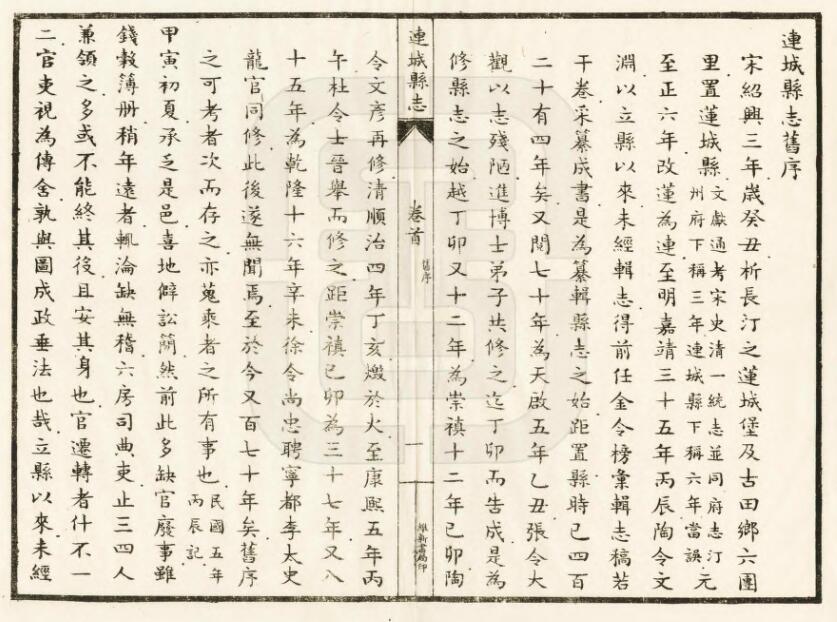 連城縣志舊序
宋紹興三年歲癸丑析長汀之蓮城堡及古田鄉六團
里置蓮城縣文獻通考宋史清一統志並同府志汀
州府下稱三年連城縣下稱六年當誤元
至正六年改蓮為連至明嘉靖三十五年丙辰陶令文
淵以立縣以來未經輯志得前任金令榜彙輯志稿若
干卷采纂成書是為纂輯縣志之始距置縣時已四百
二十有四年矣又閱七十年為天啟五年乙丑張令大
觀以志殘陋進博士弟子共修之迄丁卯而告成是為
修縣志之始越丁卯又十二年為崇禎十二年己卯陶
連城縣志
卷首
舊序
一
維新書局印
令文彥再修清順治四年丁亥燬於火至康熙五年丙
午杜令士晉舉而修之距崇禎己卯為三十七年又八
十五年為乾隆十六年辛未徐令尚忠聘寧都李太史
龍官同修此後遂無聞焉至於今又百七十年矣舊序
之可考者次而存之亦蒐乘者之所有事也民國五年
丙辰記
甲寅初夏承乏是邑喜地僻訟簡然前此多缺官廢事雖
錢穀簿册稍年遠者輒淪缺無稽六房司典吏止三四人
兼領之多或不能終其役且安其身也官遷轉者什不一
二官吏視為傳舍孰與圖成政垂法也哉立縣以來未經